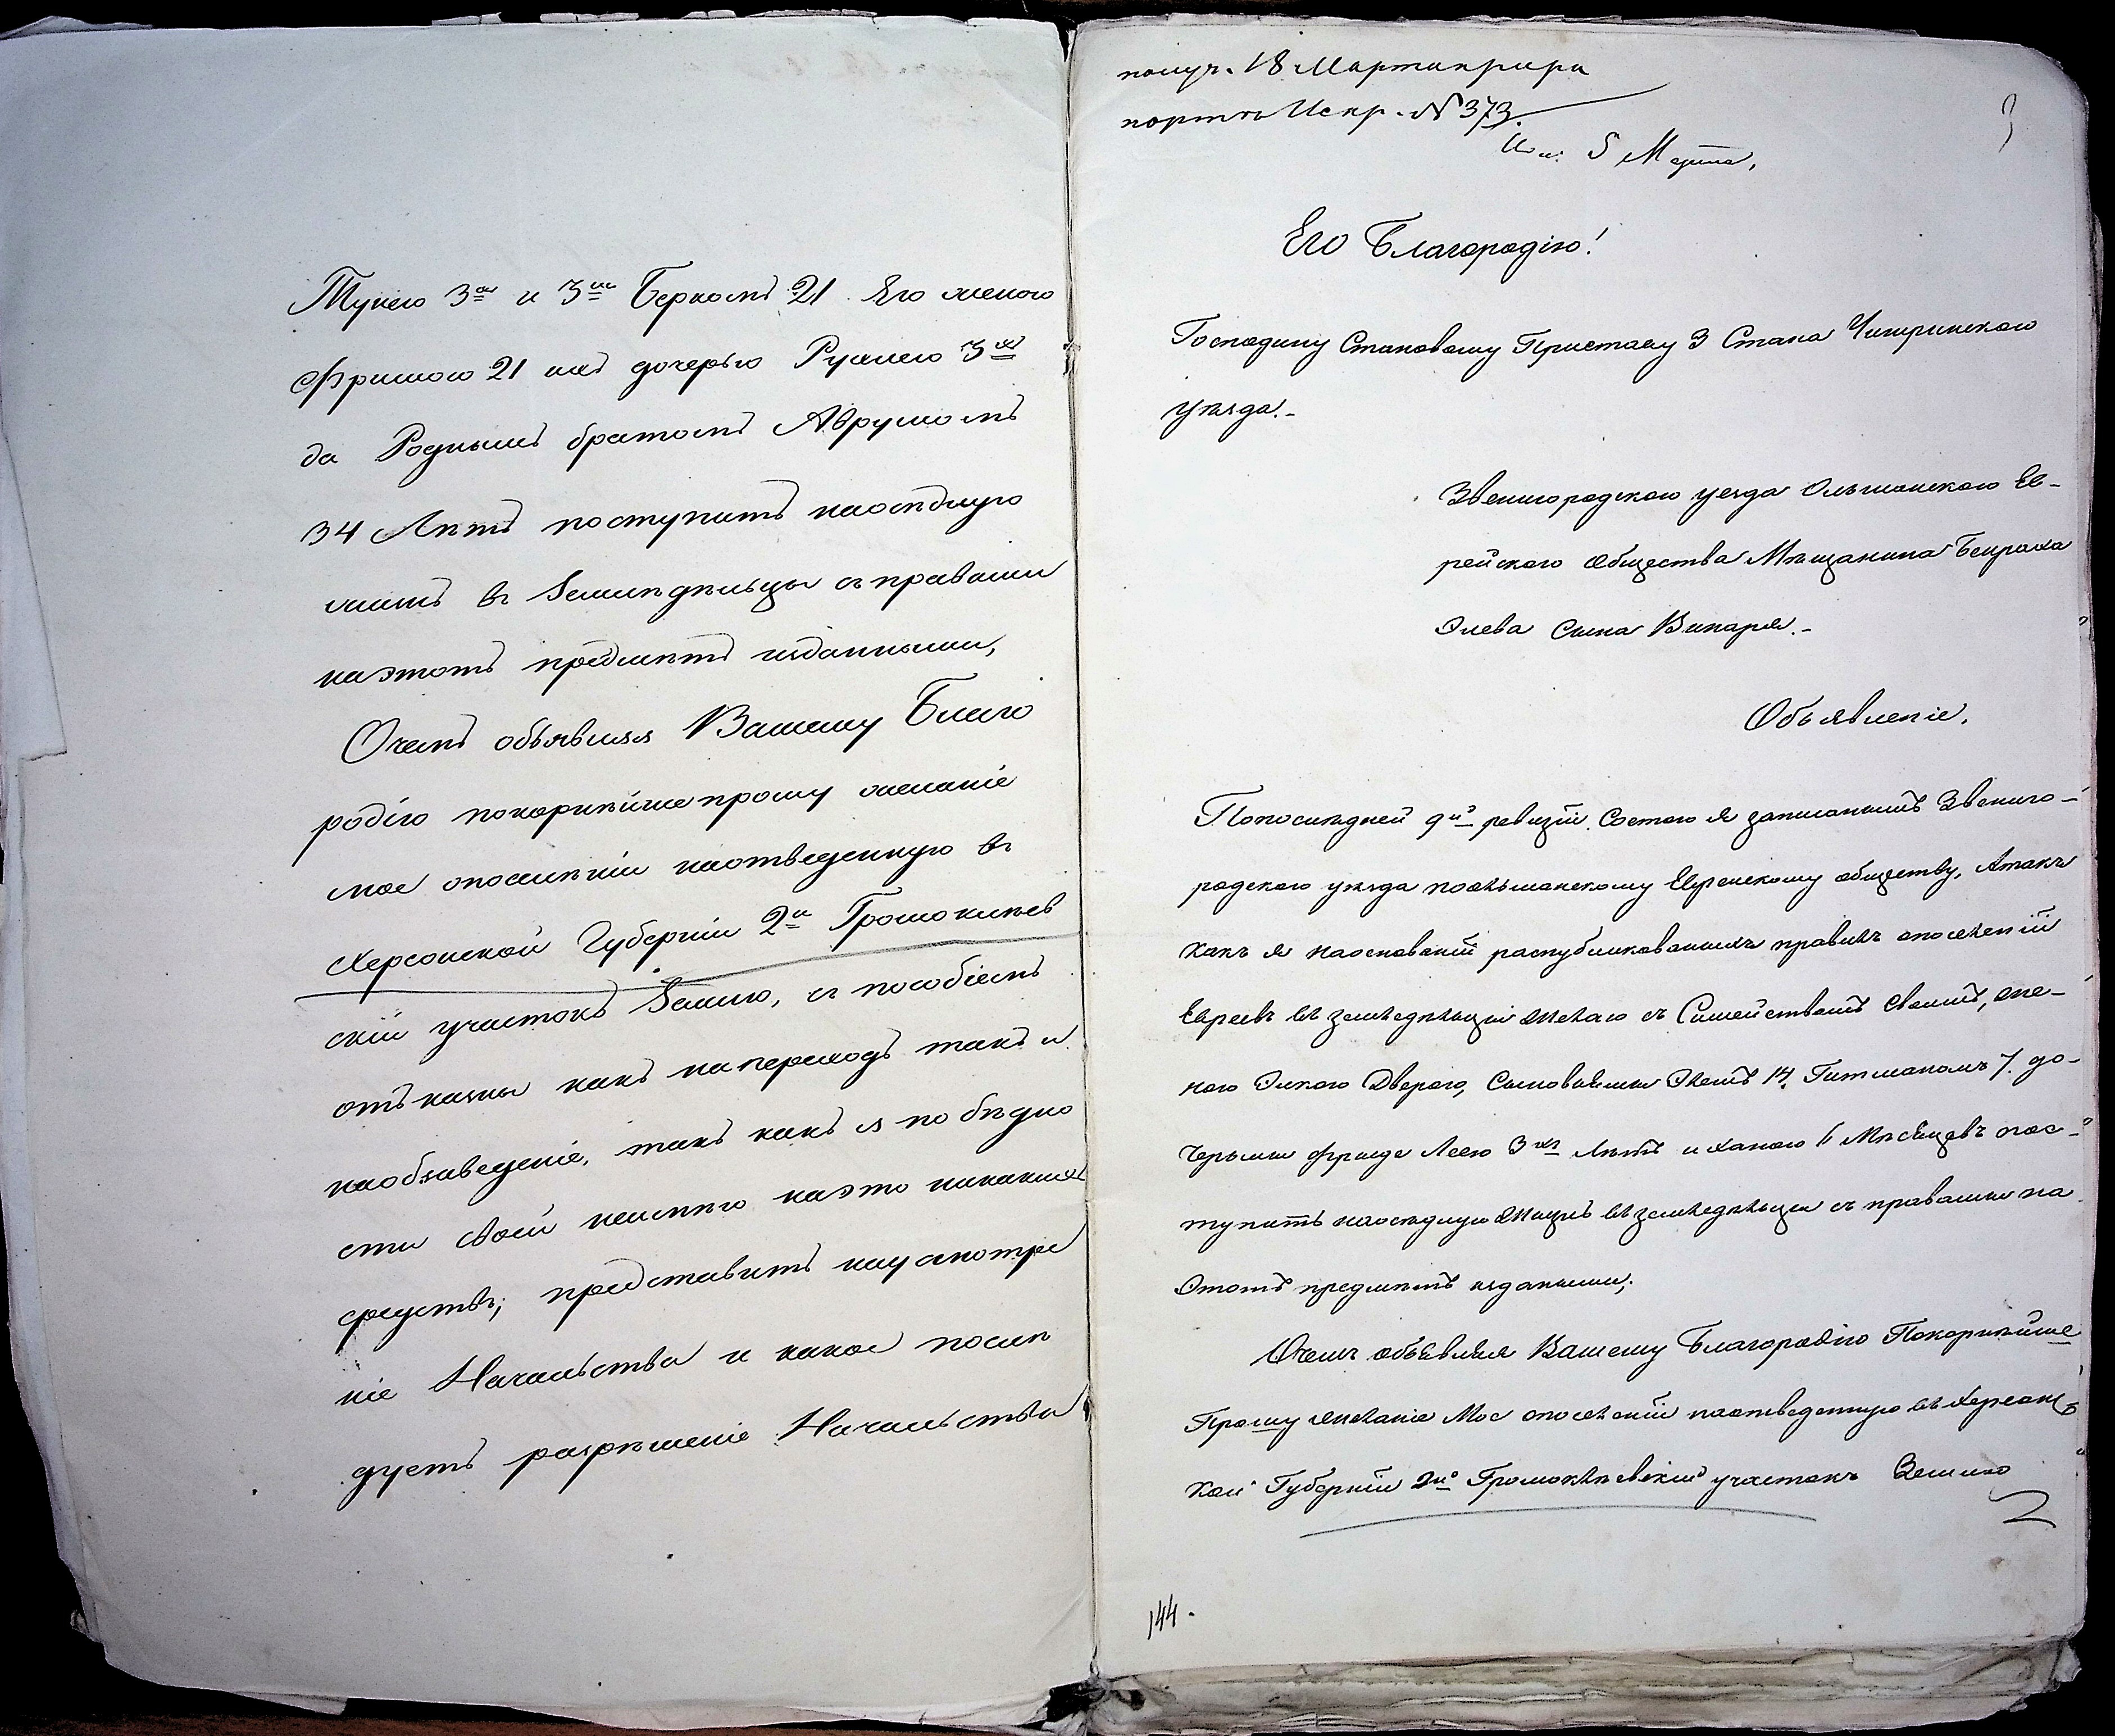 Тукею 3хъ и 3хъ Беркомъ 21 Его женою
Фримою 21 ихъ дочерью Рухлею 3хъ
да Роднымъ братомъ Аврумомъ
34 Лѣтъ поступить наосѣдлую
жизнь въ Земледѣльцы съ правами
наэтотъ предметъ изданными,
Очемъ объявляя Вашему Благо
родію покорнѣйше прошу желаніе
мое опоселеніи наотведенную въ
Херсонской Губерніи 2й Громоклѣев
скій участокъ Землю, съ пособіемъ
отъ казны какъ на переходъ такъ и
наобзаведеніе, такъ какъ я по бѣдно
сти своей неимѣю наэто никакихъ
средствъ, представить на усмотре
ніе Начальства и какое послѣ
дуетъ разрѣшеніе Начальства
получ. 18 Марта прира
портѣ Испр. № 373.
5 Марта,
3
Его Благородію!
Господину Становому Приставу 3 Стана Чигринского
уѣзда.-
Звенигородского уезда Ольшанского Ев-
рейского общества Мѣщанина
Элева Сына Винаря.-
Объявленіе.
Попослѣдней 9й ревизіи Состою я записаннымъ Звениго-
родского уѣзда поольшанскому Еврейскому обществу, Атакъ
какъ я наоснованіи распубликованныхъ правилъ опоселеніи
Евреевъ въ земледѣльци желаю съ Симействомъ своимъ, же-
ною Элкою Дверою, Сыновьями Элемъ 14, Гитманомъ 7. до-
черьми Фрейде Леею 3хъ Лѣтъ и Ханою 6 Мѣсяцевъ пос-
тупить наосѣдлую жизнь въ земледѣльци съ правами на
Этотъ предметъ изданными,
Очемъ объявляя Вашему Благородію Покорнѣйше
Прошу желаніе Мое опоселеніи наотведенную въ Херсонс
кой Губерніи 2й Громоклѣевскій участокъ Землю
2
144.